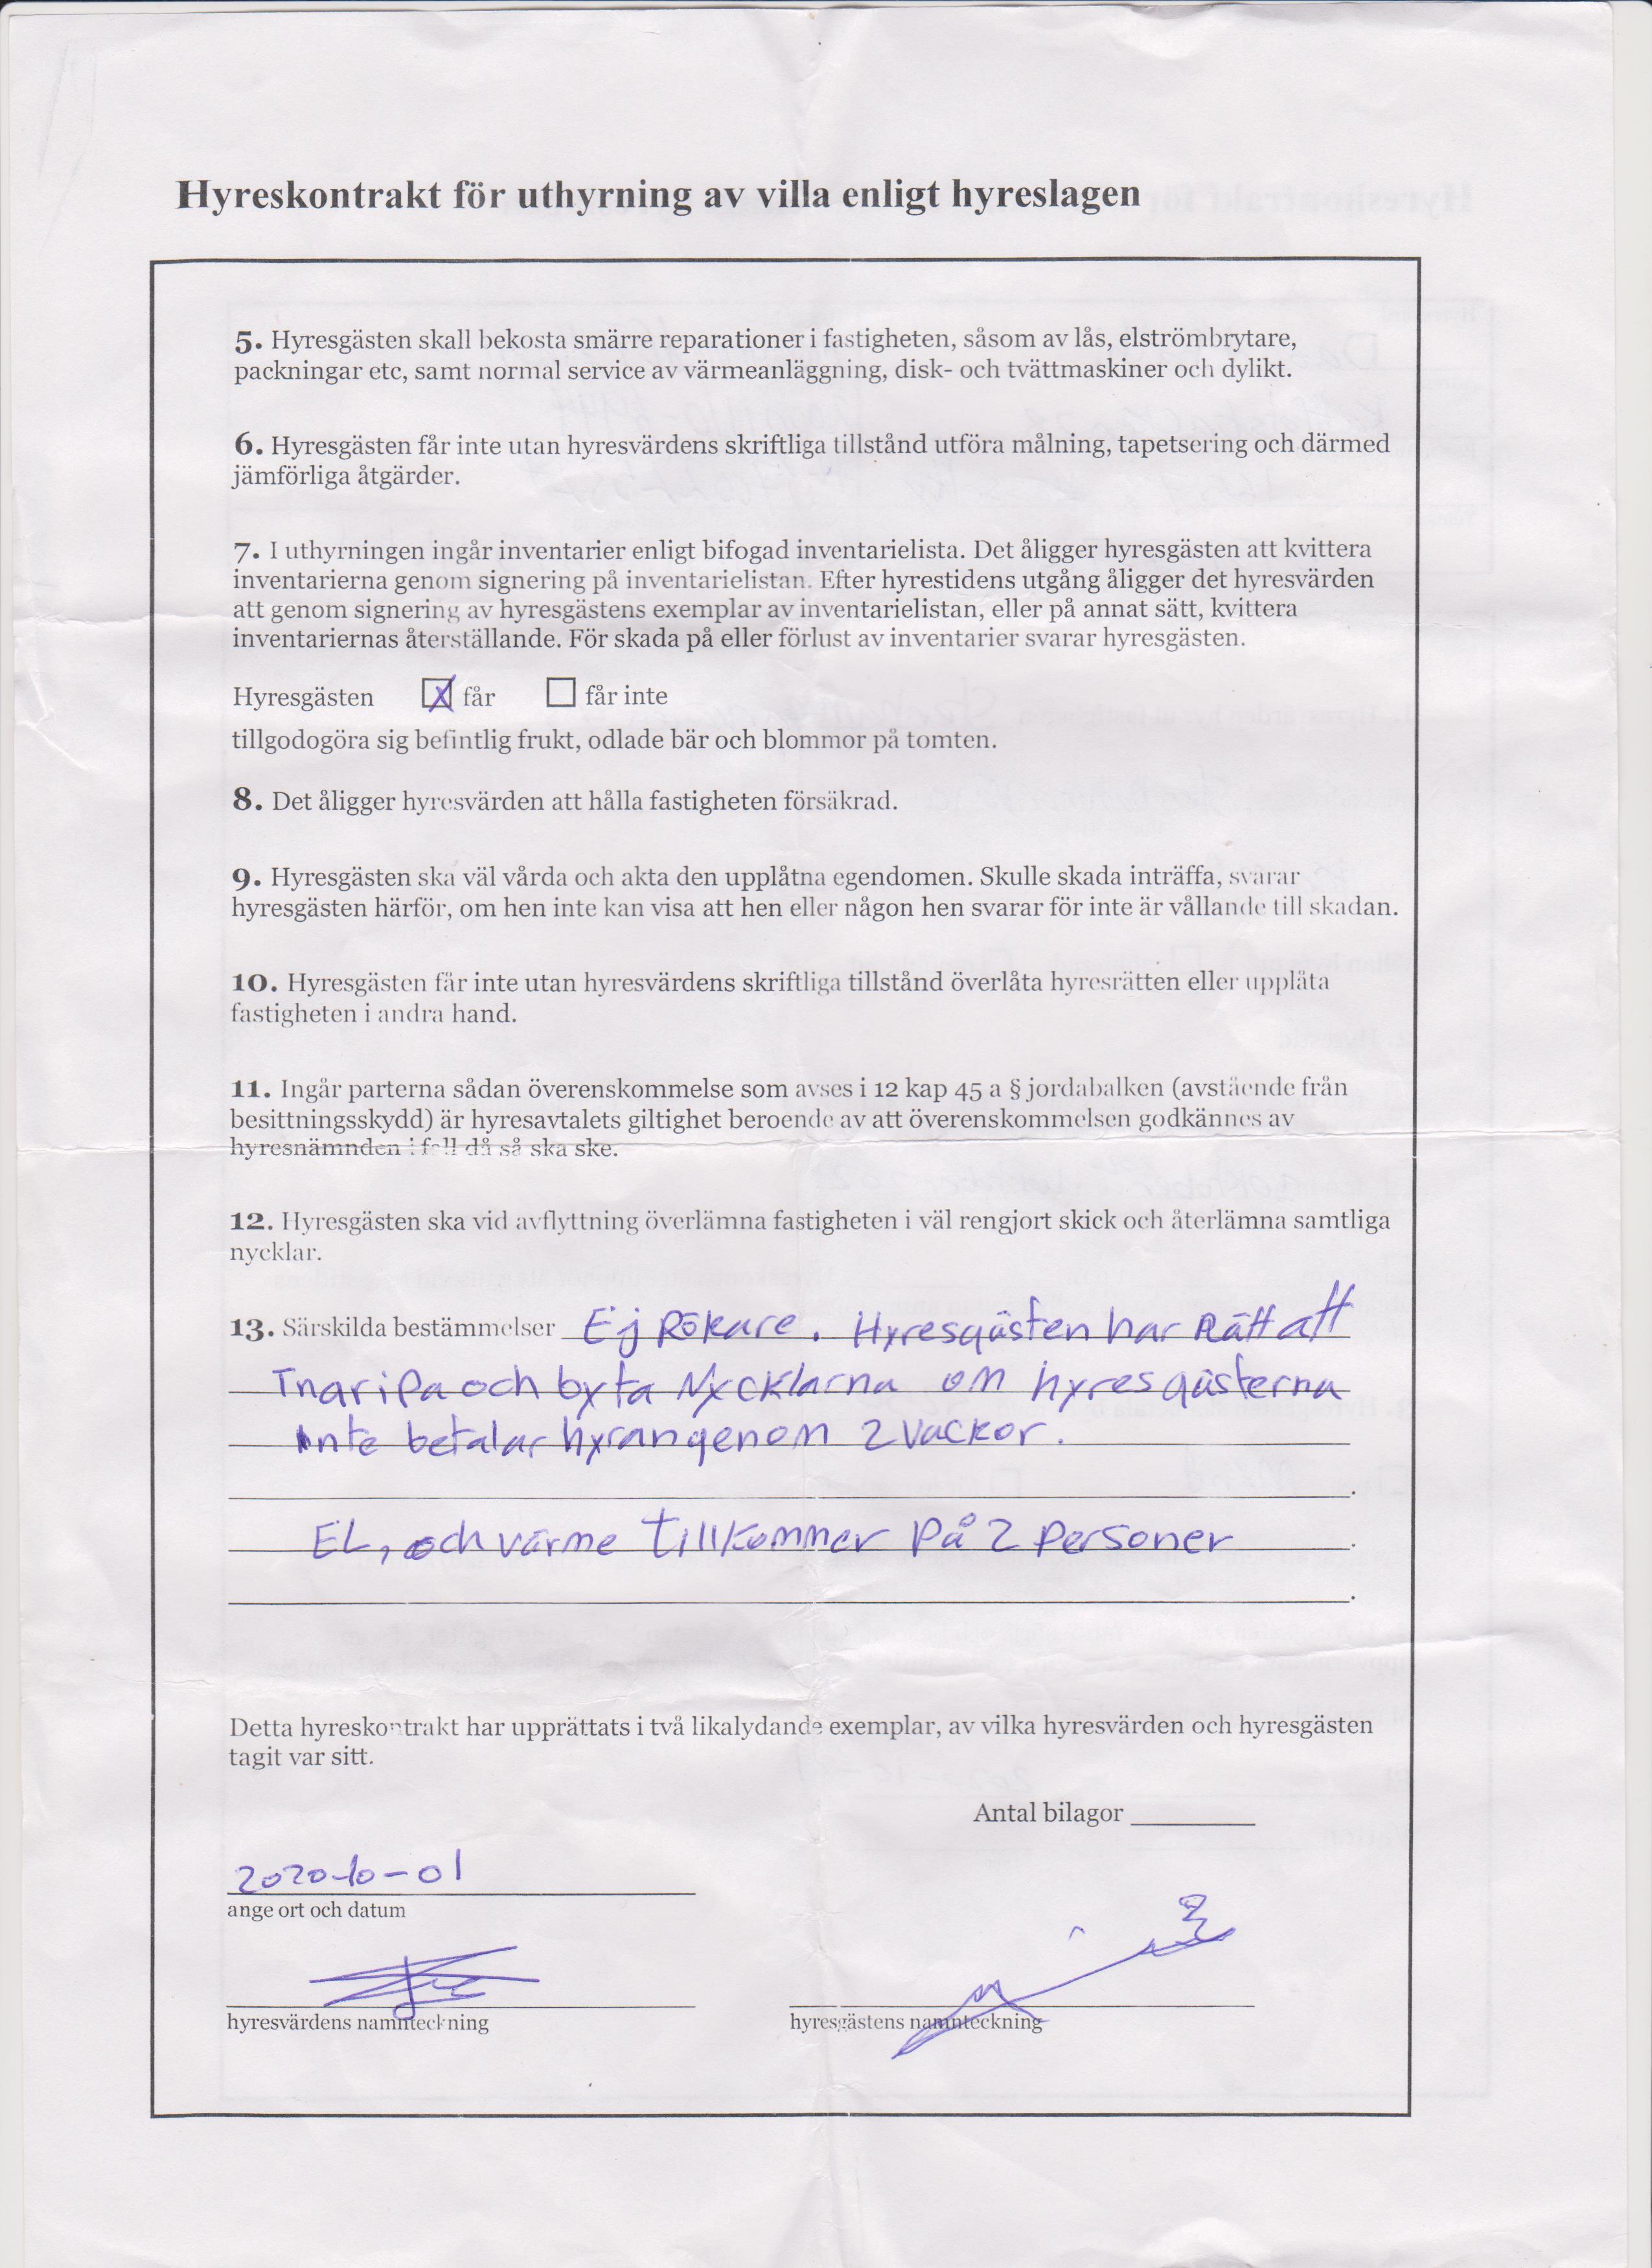 Hyreskontrakt för uthyrning av villa enligt hyreslagen
5. Hyresgästen skall bekosta smärre reparationer i fastigheten, såsom av lås, elströmbrytare,
packningar etc, samt normal service av värmeanläggning, disk- och tvättmaskiner och dylikt.
6. Hyresgästen får inte utan hyresvärdens skriftliga tillstånd utföra målning, tapetsering och därmed
jämförliga åtgärder.
7. I uthyrningen ingår inventarier enligt bifogad inventarielista. Det åligger hyresgästen att kvittera
inventarierna genom signering på inventarielistan. Efter hyrestidens utgång åligger det hyresvärden
att genom signering av hyresgästens exemplar av inventarielistan, eller på annat sätt, kvittera
inventariernas återställande. För skada på eller förlust av inventarier svarar hyresgästen.
Hyresgästen X får får inte
tillgodogöra sig befintlig frukt, odlade bär och blommor på tomten.
8. Det åligger hyresvärden att hålla fastigheten försäkrad.
9. Hyresgästen ska väl vårda och akta den upplåtna egendomen. Skulle skada inträffa, svarar
hyresgästen härför, om hen inte kan visa att hen eller någon hen svarar för inte är vållande till skadan.
10. Hyresgästen får inte utan hyresvärdens skriftliga tillstånd överlåta hyresrätten eller upplåta
fastigheten i andra hand.
11. Ingår parterna sådan överenskommelse som avses i 12 kap 45 a § jordabalken (avstående från
besittningsskydd) är hyresavtalets giltighet beroende av att överenskommelsen godkännes av
hyresnämnden i fall då så ska ske.
12. Hyresgästen ska vid avflyttning överlämna fastigheten i väl rengjort skick och återlämna samtliga
nycklar.
13. Särskilda bestämmelser Ej Rökare. Hyresgästen har Rätt att
och byta Nycklarna om hyresgästerna
inte betalar hyran genom 2 vackor.
EL, och värme tillkommer på 2 personer
Detta hyreskontrakt har upprättats i två likalydande exemplar, av vilka hyresvärden och hyresgästen
tagit var sitt.
Antal bilagor
2020-10-01
ange ort och datum
hyresvärdens namnteckning hyresgästens namnteckning